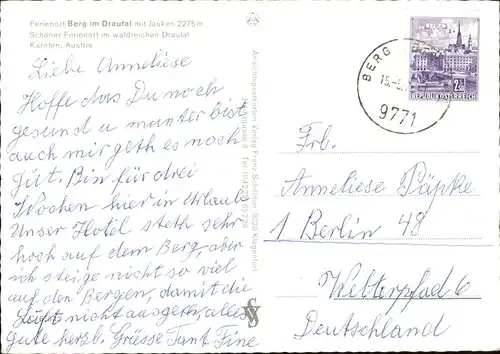 Ferienort Berg im Drautal mit Jauken 2275 m
Schöner Ferienort im waldreichen Drautal
Kärnten, Austria
Liebe Anneliese
Hoffe das Du noch
gesund u munter bist
auch mir geth es noch
gut. Bin für drei
Wochen hier in Urlaub
Unser Hotel steth sehr
hoch auf dem Berg, aber
ich steige nicht so viel
auf den Bergen, damit die
Luft nicht ausgeth, alles
gute herzl. Grüsse Tant Fine
Ansichtskartenverlag Franz Schilcher 9020 Klagenfurt
BERG
15.-5.
9771
2.50
REPUBLIK ÖSTERREICH
Frl.
Anneliese Päpke
1 Berlin 48
Welterpfad 6
Deutschland